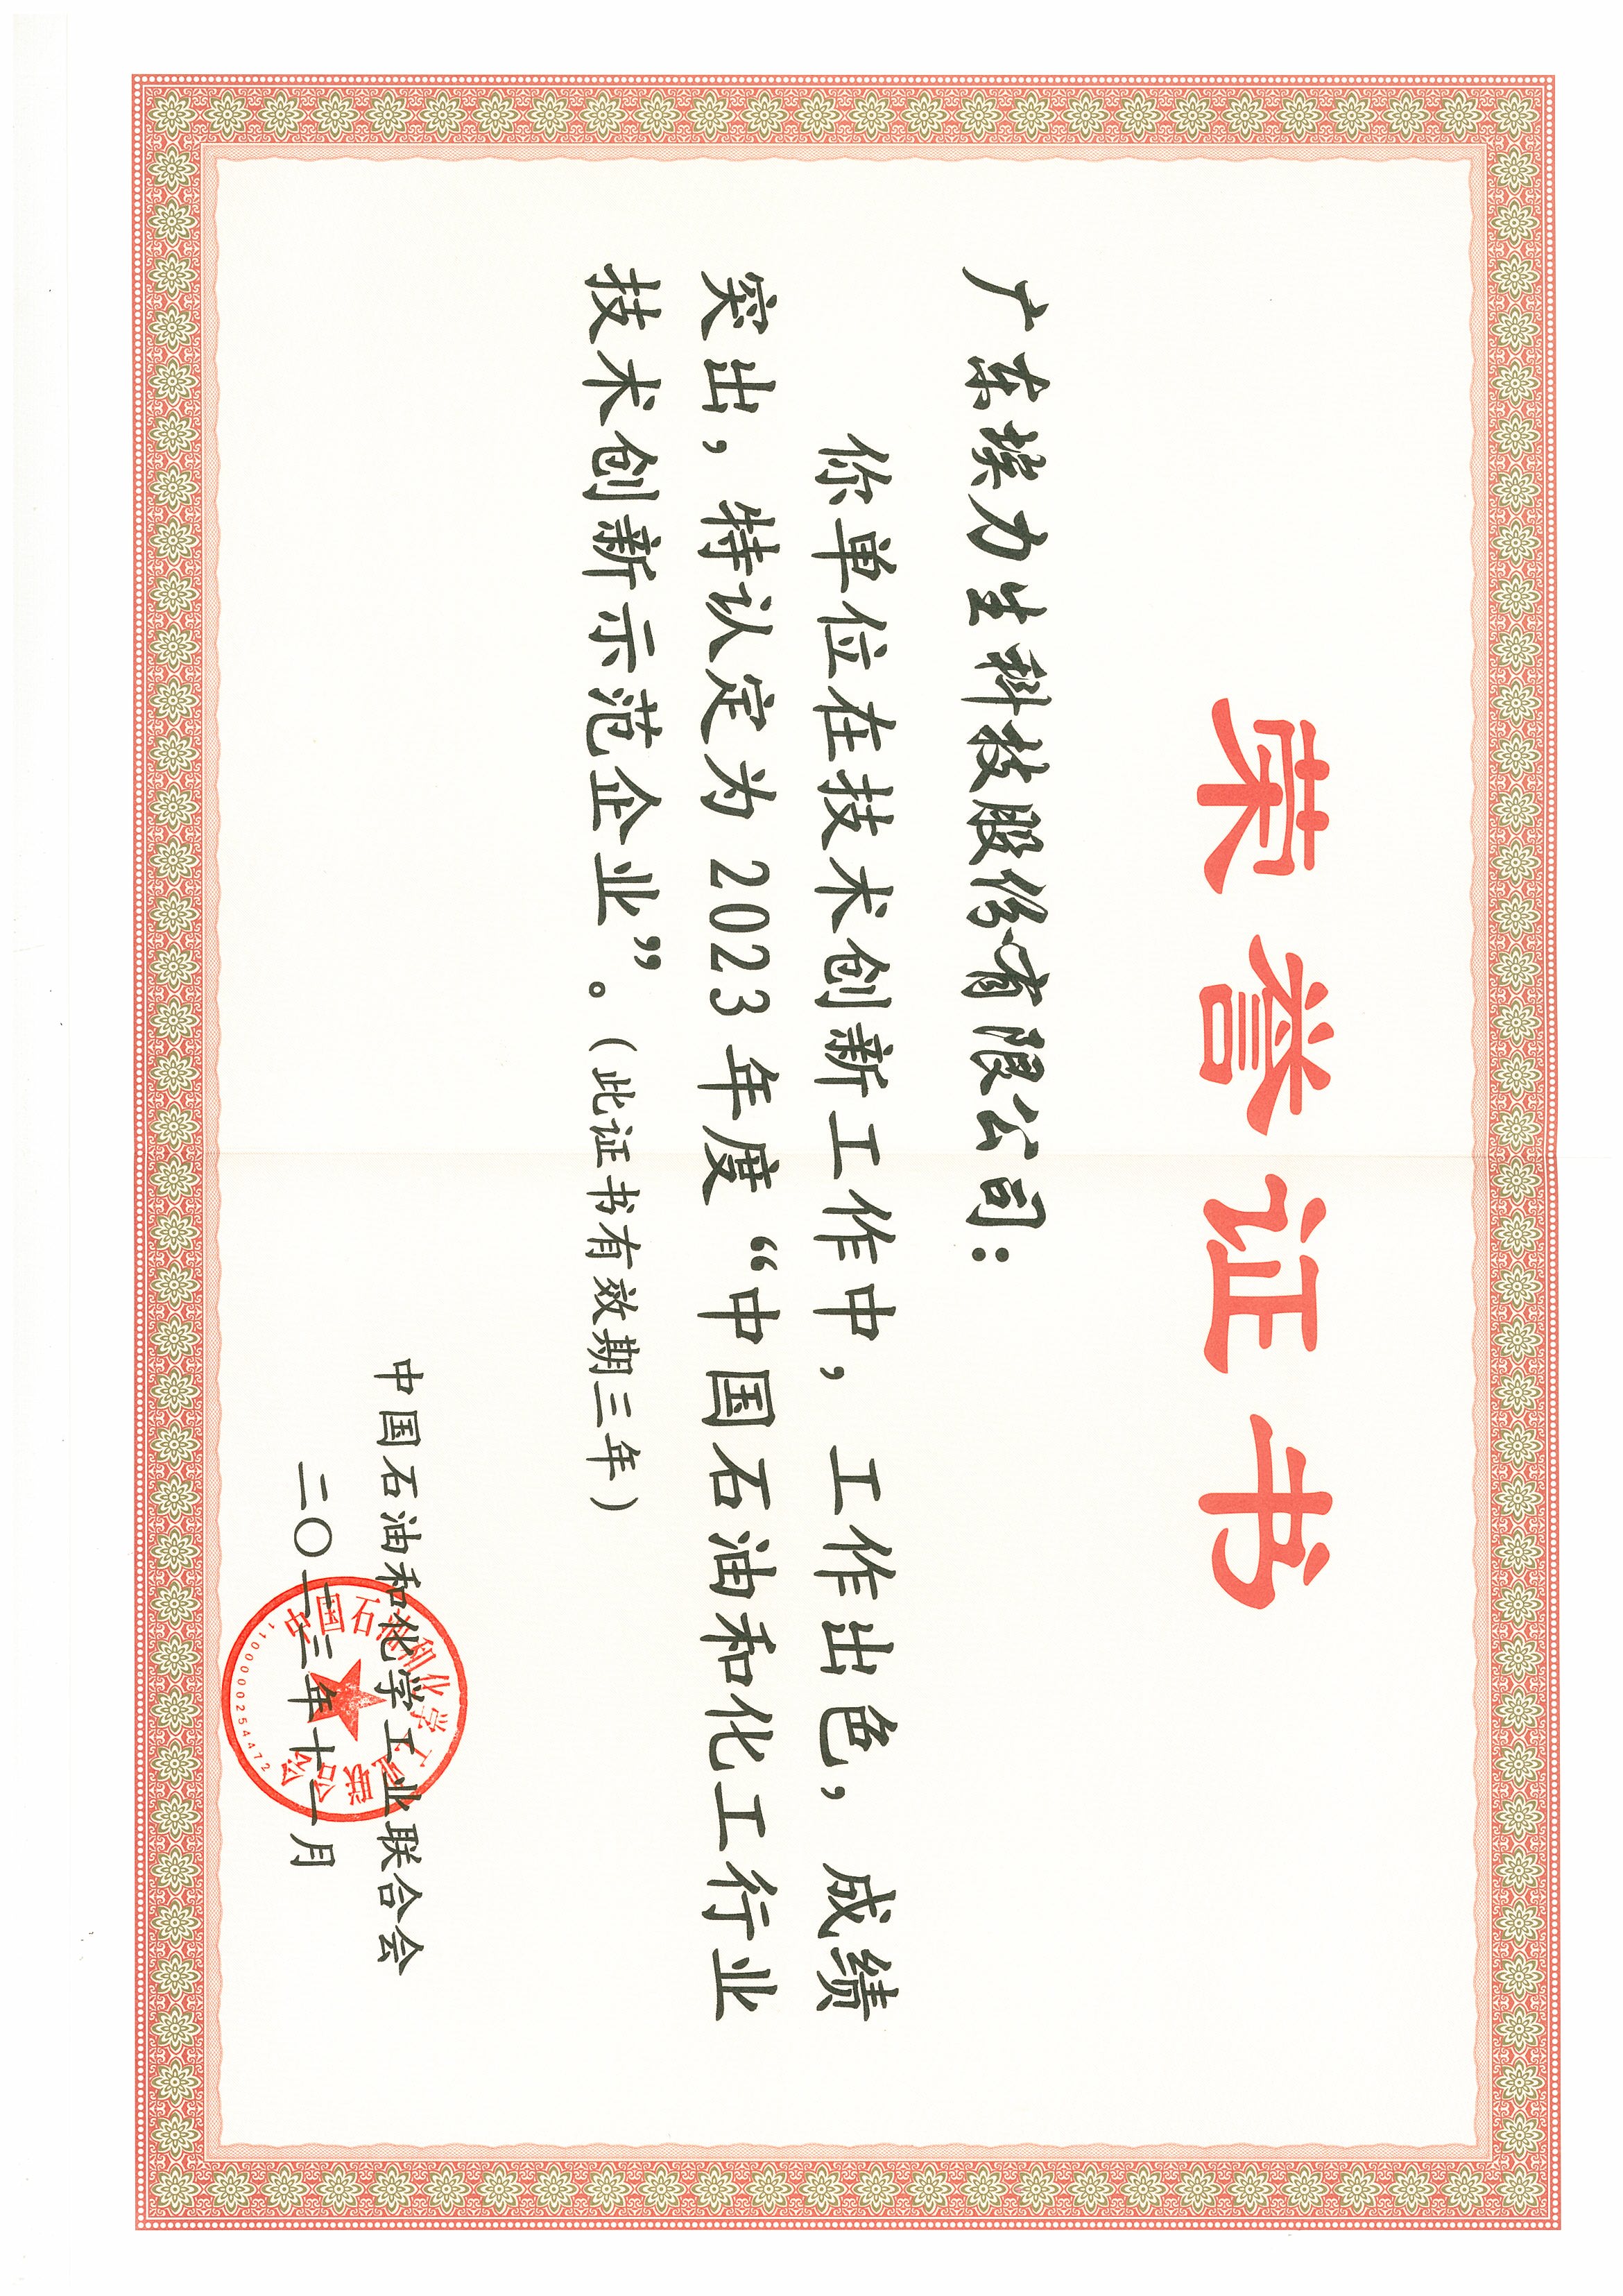 荣誉证书
广东埃力生科技股份有限公司：
你单位在技术创新工作中，工作出色，成绩
突出，特认定为2023年度“中国石油和化工行业
技术创新示范企业”。（此证书有效期三年）
中国石油和化学工业联合会
二〇二三年十二月
中国石油和化学工业联合会
1100000254472